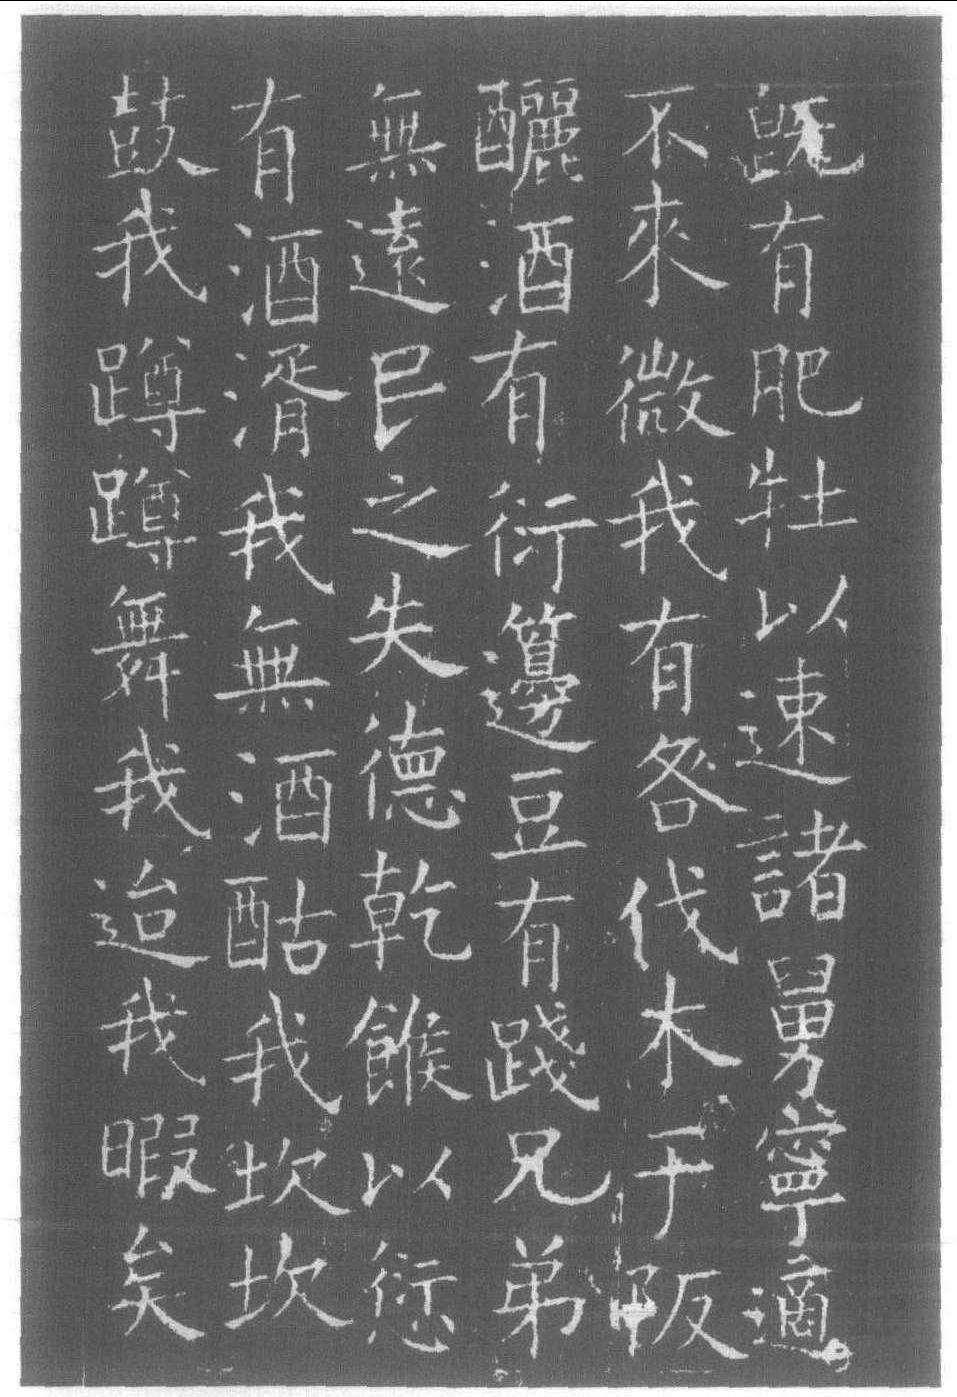 既有肥牡以速諸舅寧適
不來微我有咎伐木于阪
釃酒有衍籩豆有踐兄弟
無遠民之失德乾餱以愆
有酒湑我無酒酤我坎坎
鼓我蹲蹲舞我迨我暇矣